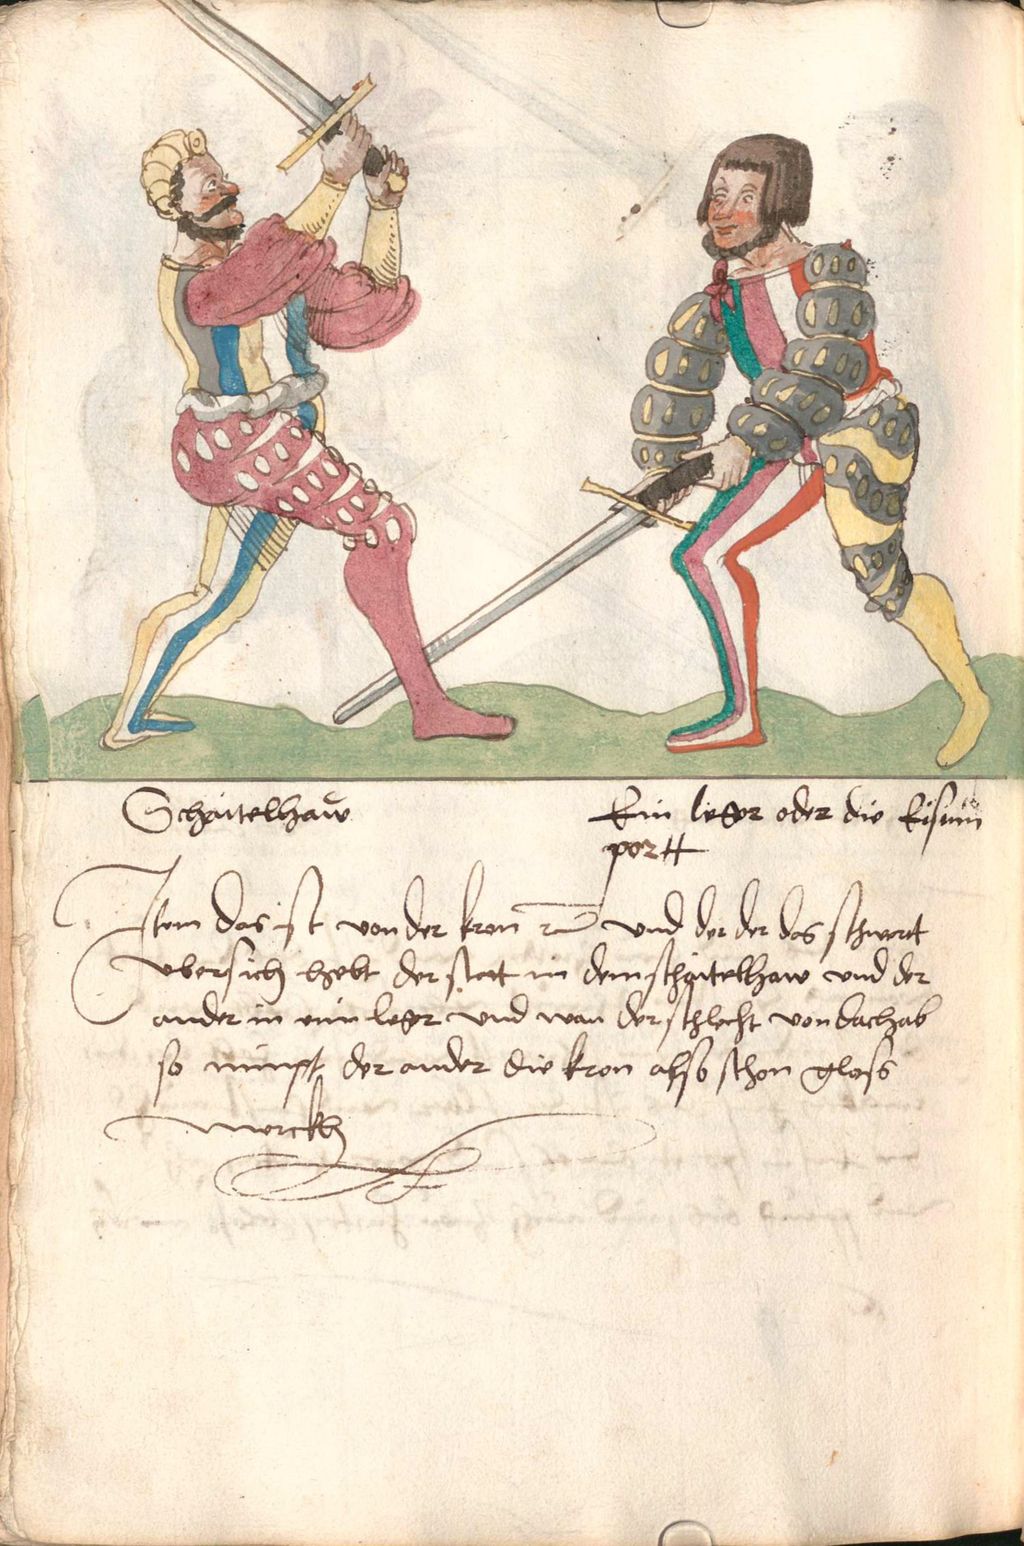 Schaitelhaw
Ein leger oder die Eisnin
portt
Item das ist von der kron und der der das schwert
vbersich hebt der stat in dem schaitelhaw und der
ander in ein leger und wan der schlecht von dach ab
so nimpt der ander die kron also schon gloss
Merckh